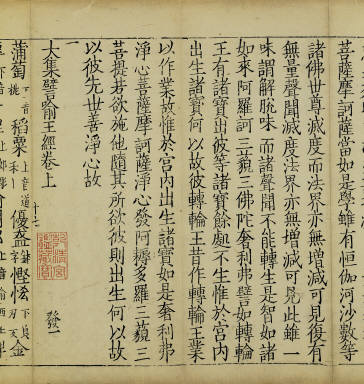 菩薩摩訶薩當如是學雖有恒伽河沙數等
諸佛世尊滅度而法界亦無增減可見復有
無量聲聞滅度法界亦無增減可見此雖一
味謂解脫味而諸聲聞不能轉生是智如諸
如來阿羅訶三藐三佛陀奢利弗譬如轉輪
王有諸寶出彼等諸寶餘處不生惟於宮內
出生諸寶何以故彼轉輪王昔作轉輪王業
以作業故惟於宮內出生諸寶如是奢利弗
淨心菩薩摩訶薩淨心發阿耨多羅三藐三
菩提若欲施他隨其所欲彼則出生何以故
以彼先世善淨心故
大集譬喻王經卷上
十三
發一
蒲萄
稻粟
優盋
慳悋